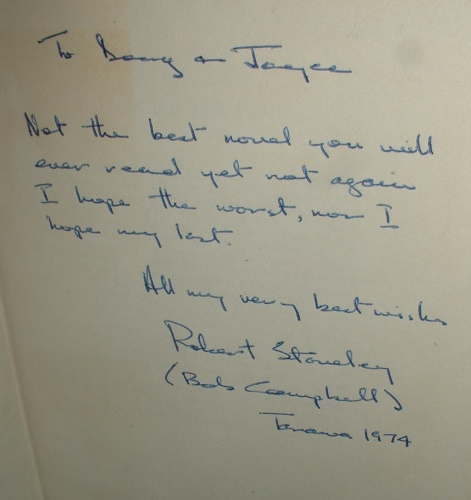 To Doug + Joyce
Not the best novel you will
ever read yet not again
I hope the worst, nor I
hope my last.
All my very best wishes
Robert
(Bob Campbell)
1974